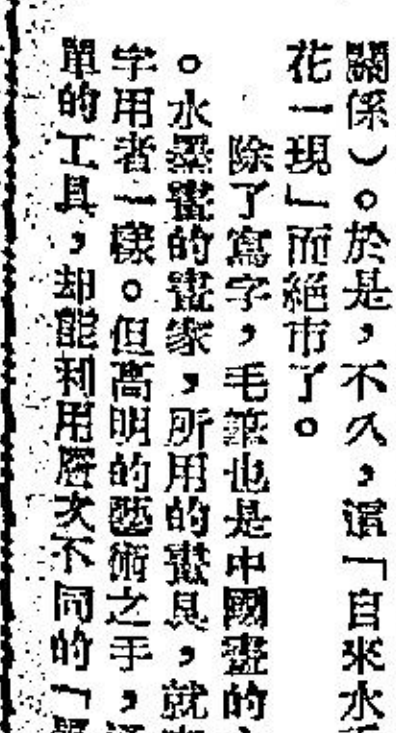 關係)。於是,不久,這「自來水
花一現」而絕市了。
除了寫字,毛筆也是中國畫的
。水墨畫的畫家,所用的畫具,就
字用者一樣。但高明的藝術之手,
單的工具,却能利用層次不同的「